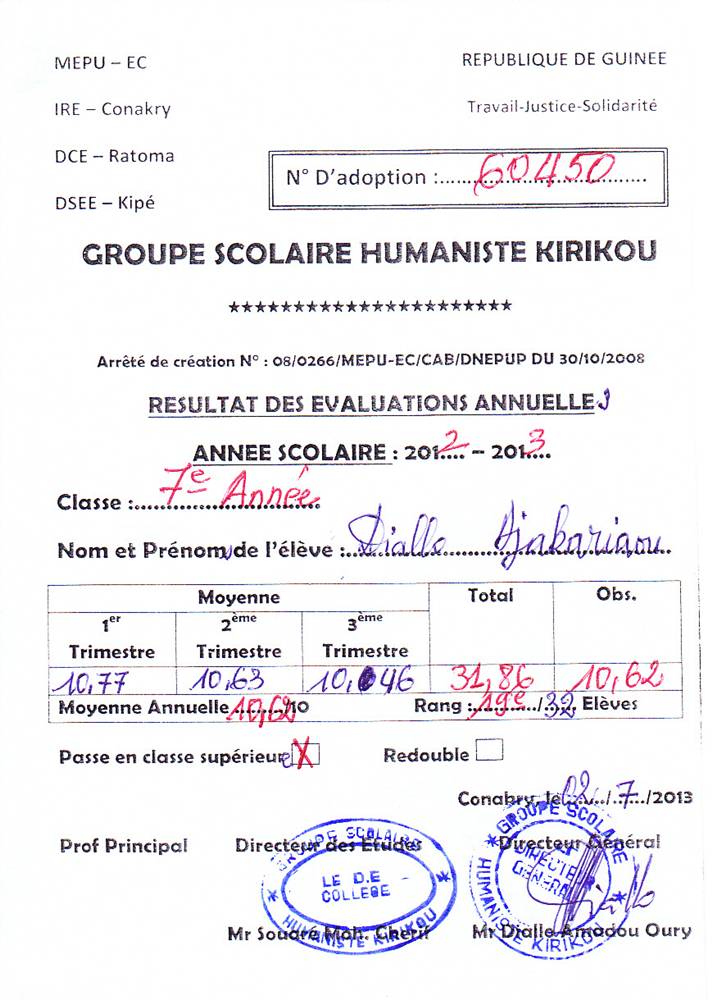 MEPU – EC
REPUBLIQUE DE GUINEE
IRE – Conakry
Travail-Justice-Solidarité
DCE – Ratoma
N° D'adoption :......60450......
DSEE – Kipé
GROUPE SCOLAIRE HUMANISTE KIRIKOU
**********************
Arrêté de création N° : 08/0266/MEPU-EC/CAB/DNEPUP DU 30/10/2008
RESULTAT DES EVALUATIONS ANNUELLES
ANNEE SCOLAIRE : 2012 – 2013
Classe : 7e Année
Nom et Prénom de l'élève : Diallo Djakariaou
Moyenne Total Obs.
1er Trimestre 2ème Trimestre 3ème Trimestre
10,77 10,63 10,46 31,86 10,62
Moyenne Annuelle 10,62/10 Rang : 19e/32 Elèves
Passe en classe supérieure X Redouble
Conakry, le 02/7/2013
Prof Principal Directeur des Etudes Directeur Général
GROUPE SCOLAIRE HUMANISTE KIRIKOU
LE D.E
COLLEGE
GROUPE SCOLAIRE HUMANISTE KIRIKOU
DIRECTEUR
GENERAL
Diallo
Mr Souaré Moh. Cherif Mr Diallo Amadou Oury